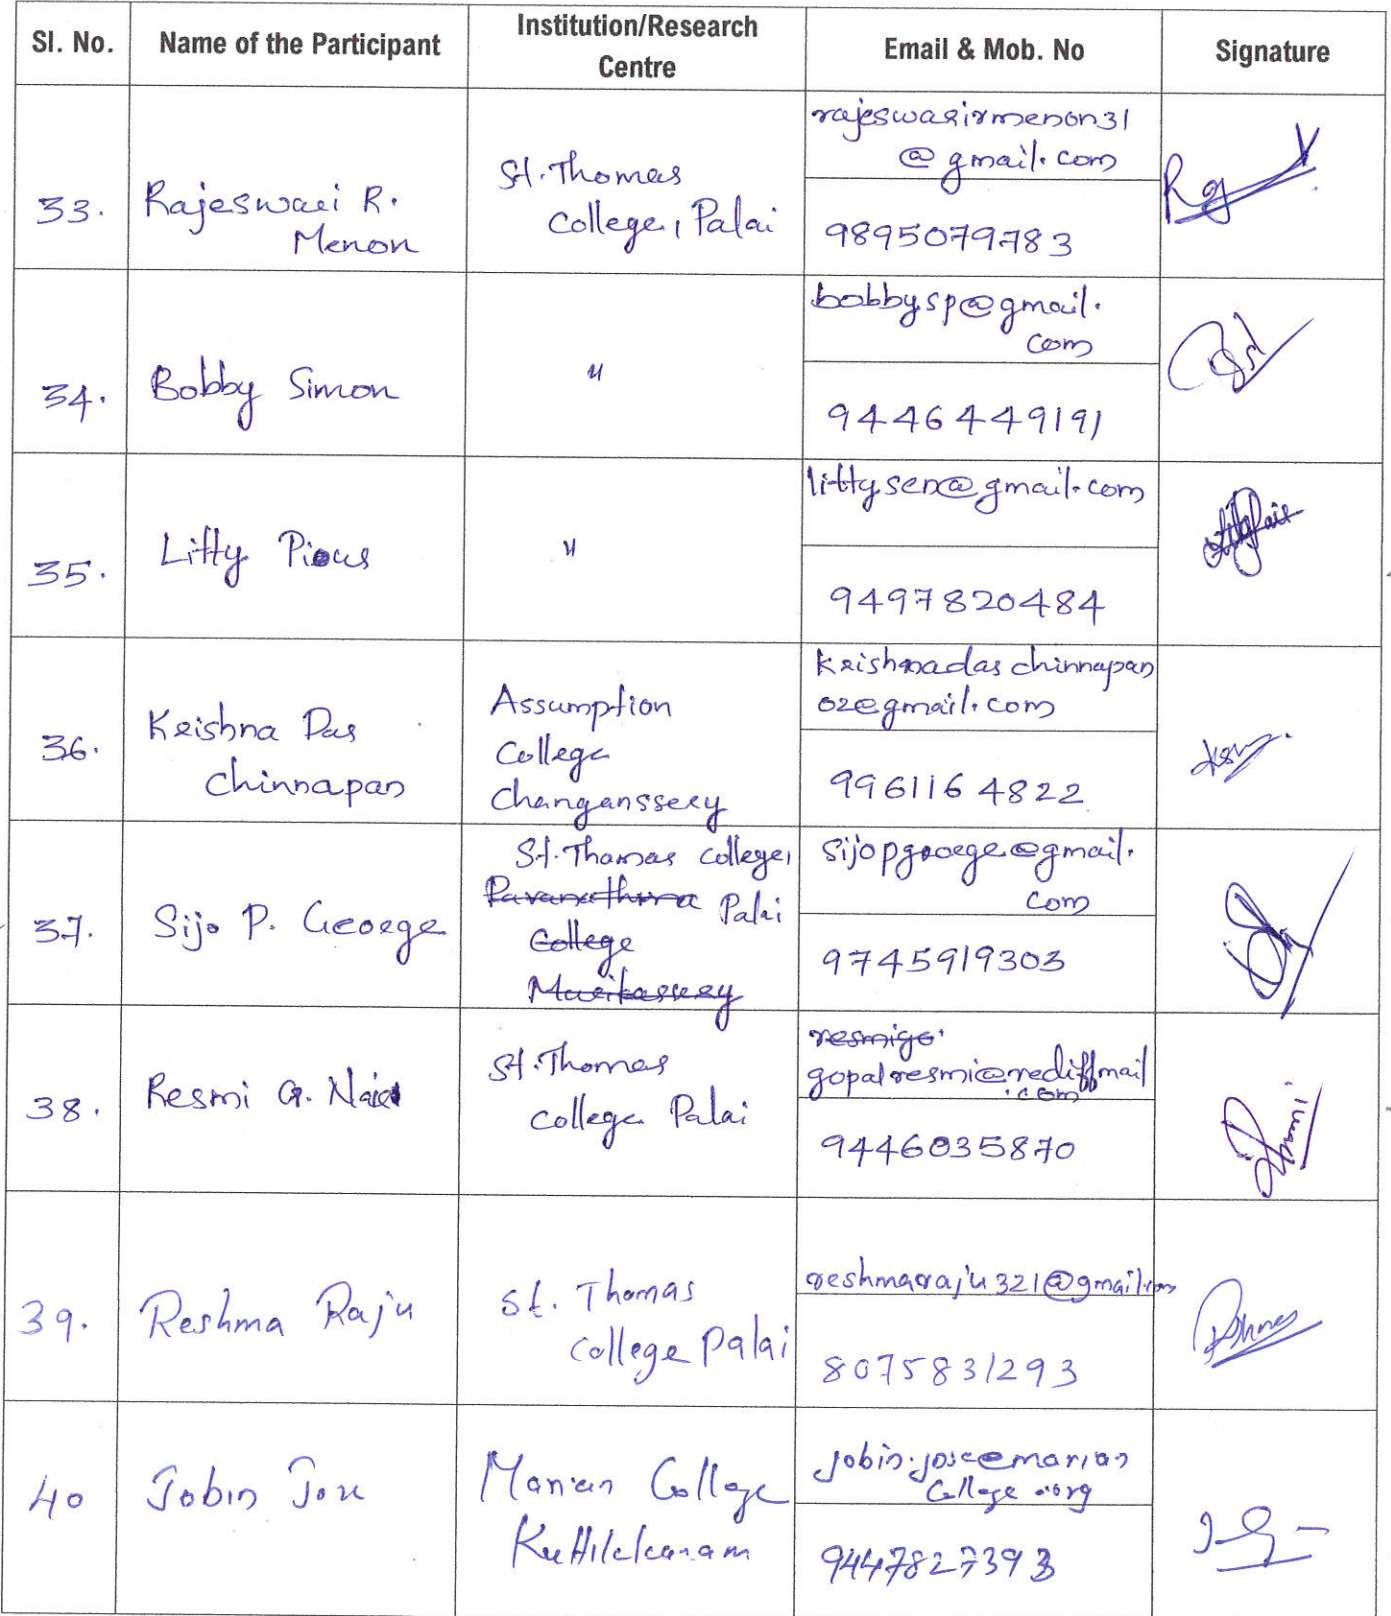 Sl. No.
Name of the Participant
Institution/Research
Centre
Email & Mob. No
Signature
33.
Rajeswari R.
Menon
St. Thomas
College, Palai
rajeswarirmenon31
@gmail.com
9895079783
34.
Bobby Simon
"
bobbysp@gmail.
com
9446449191
35.
Litty Pious
"
littysen@gmail.com
9497820484
36.
Krishna Das
Chinnapan
Assumption
College
Changanssery
krishnadaschinnapan
02@gmail.com
9961164822
37.
Sijo P. George
St. Thomas College,
Pavanathma Palai
College
Murikassery
sijopgeorge@gmail.
com
9745919303
38.
Resmi G. Nair
St. Thomas
College Palai
resmigo
gopalresmi@rediffmail
.com
9446035870
39.
Reshma Raju
St. Thomas
College Palai
reshmaraju321@gmail.com
8075831293
40
Jobin Jose
Marian College
Kuttikkanam
jobin.jose@marian
College.org
9447827393